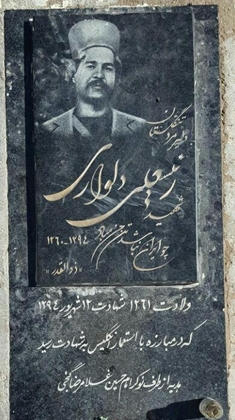 دلیر مرد تنگستان
شهید
رئیسعلی دلواری
چو ایران نباشد تن من مباد
۱۲۶۰-۱۲۹۴
«ذوالقدر»
ولادت ۱۲۶۱ شهادت ۱۲ شهریور ۱۲۹۴
که در مبارزه با استعمار انگلیس به شهادت رسید
هدیه از طرف نوکر امام حسین غلامرضا گنجی